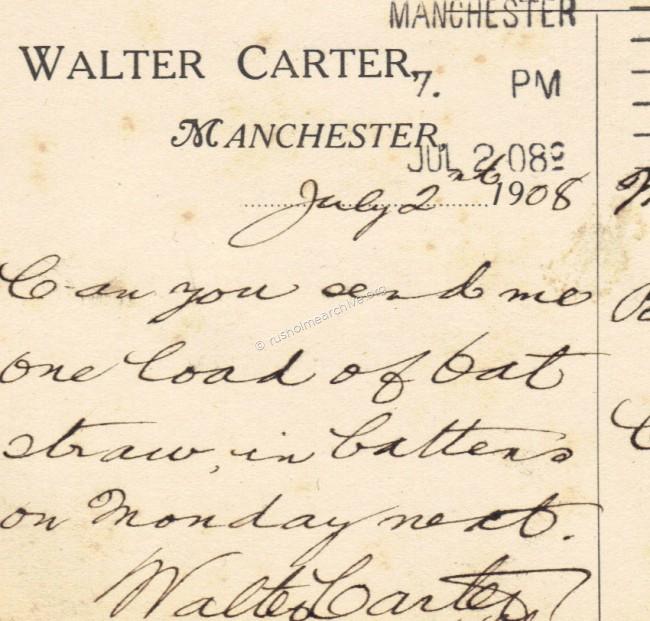 MANCHESTER
WALTER CARTER,
7. PM
MANCHESTER,
JUL 2 08
July 2nd 1908
Can you send me
© rusholmearchive.org
one load of Oat
straw, in battens
on Monday next.
Walter Carter